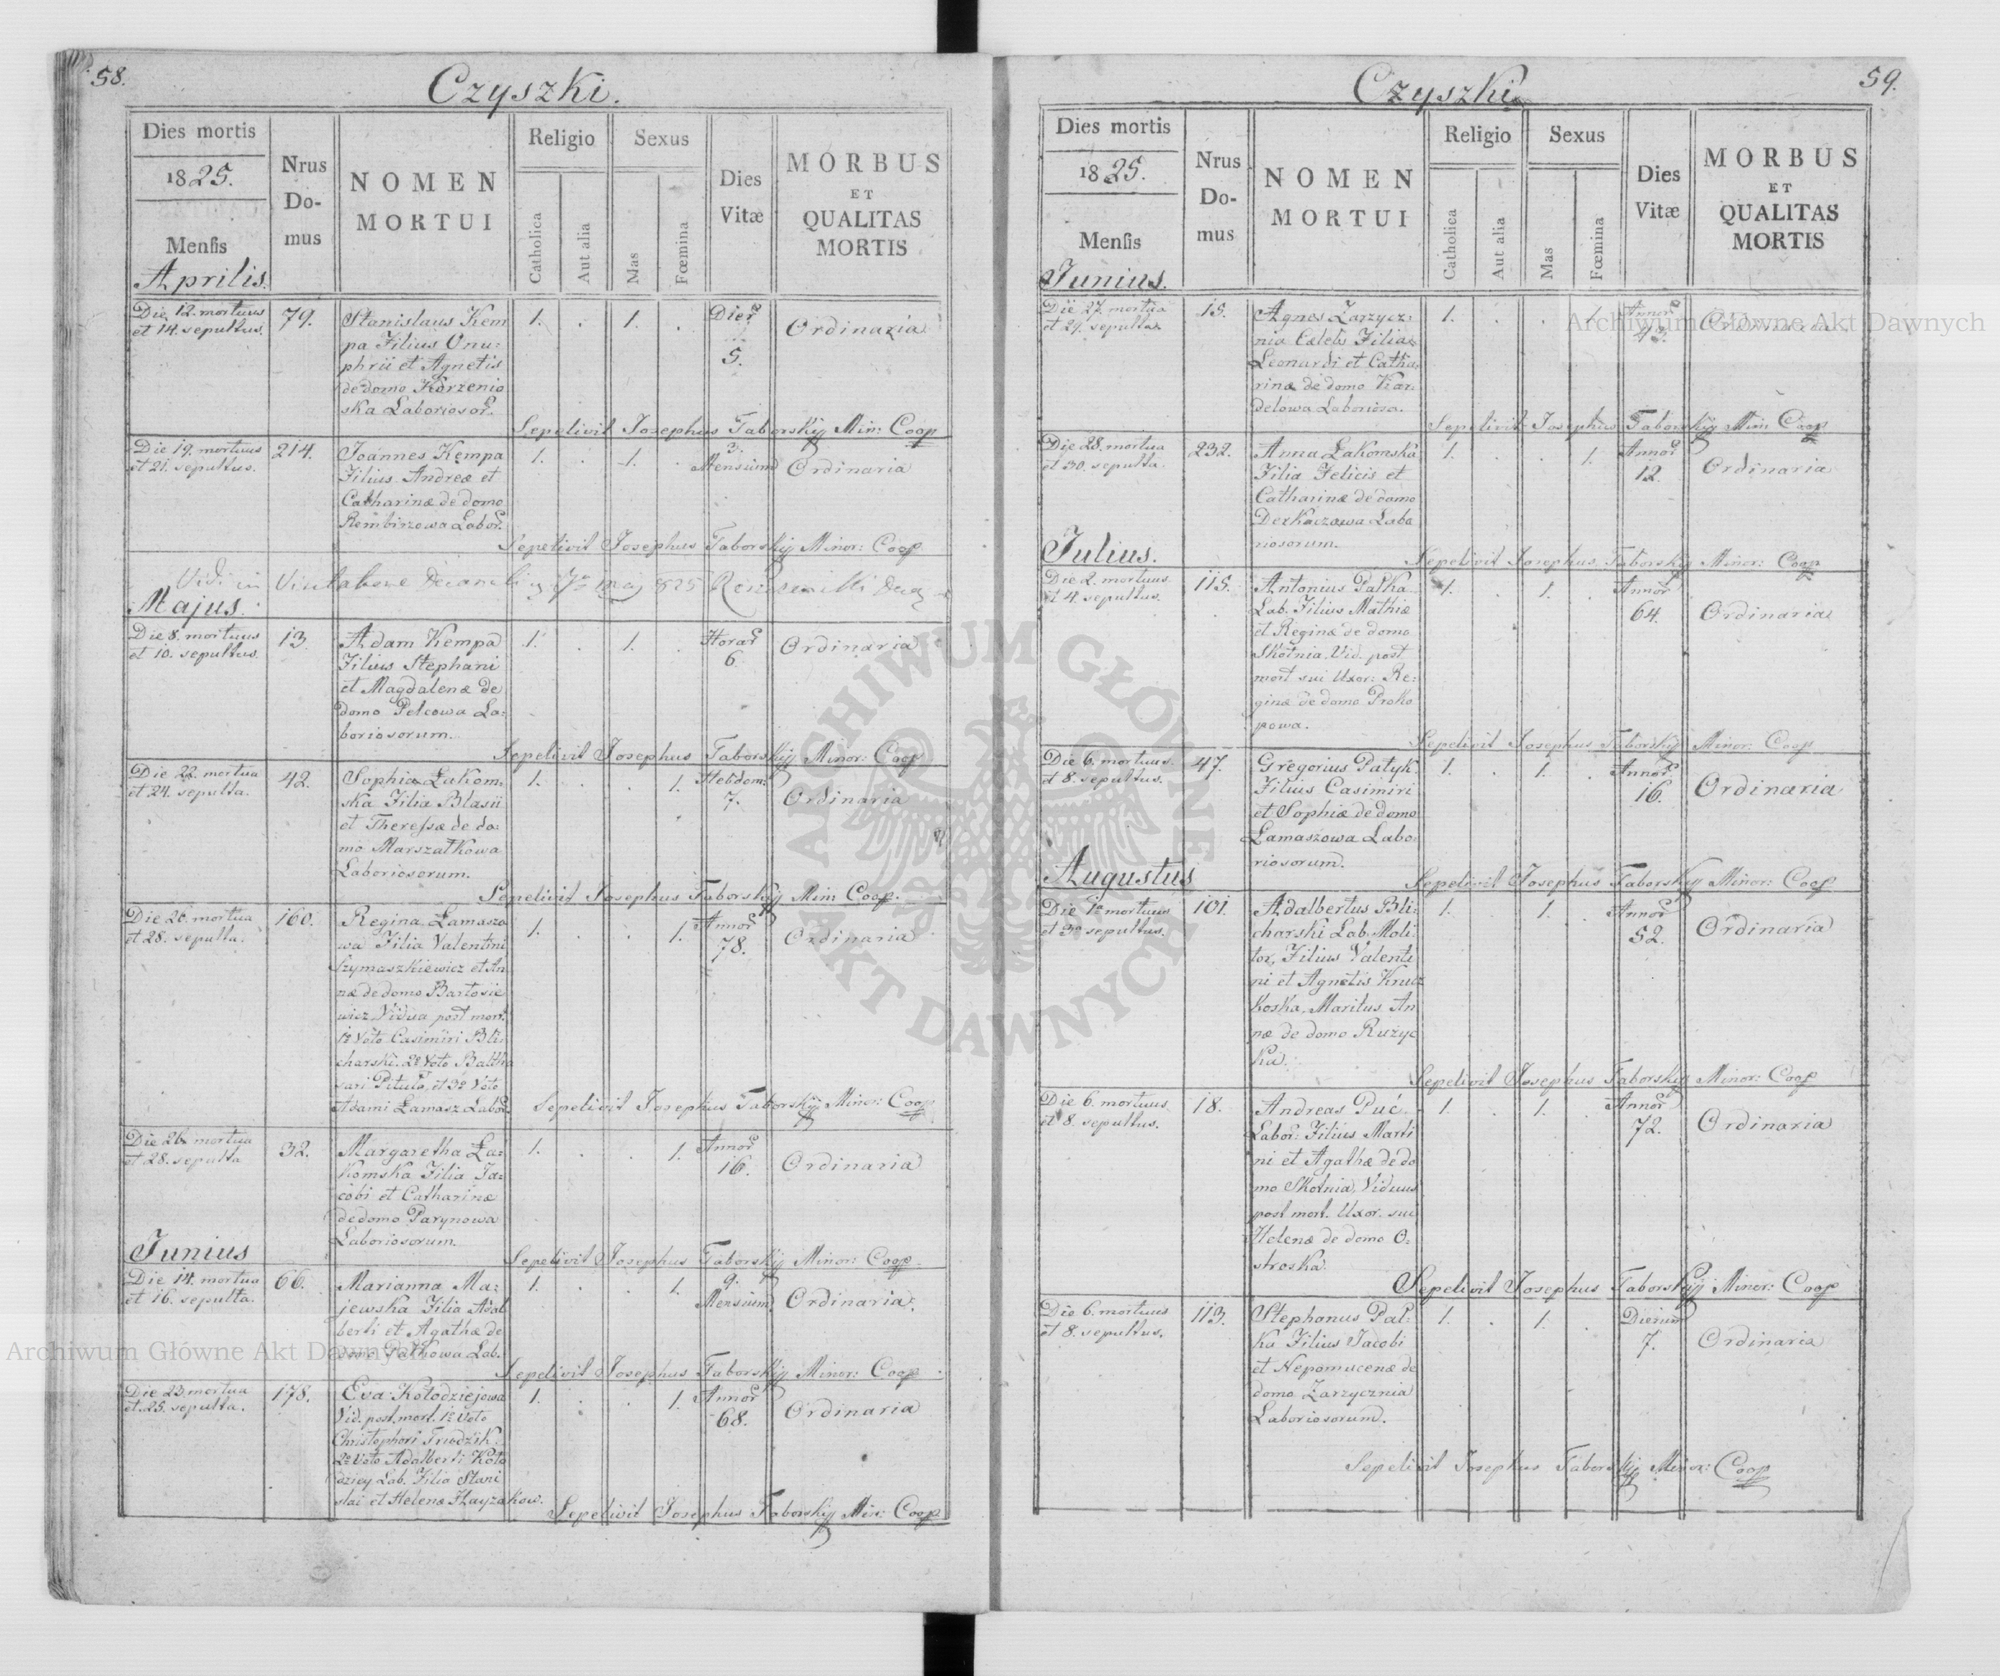 58.
Czyszki.
Dies mortis
1825.
Mensis
Aprilis.
Nrus
Do-
mus
NOMEN
MORTUI
Religio
Catholica
Aut alia
Sexus
Mas
Fœmina
Dies
Vitæ
MORBUS
ET
QUALITAS
MORTIS
Die 12. mortuus
et 14. sepultus.
79.
Stanislaus Kem
pa Filius Onu-
phrii et Agnetis
de domo Korzenio
ska Laborioso
1. . 1. .
Dier
5.
Ordinaria
Sepelivit Josephus Taborskij Min: Coop
Die 19. mortuus
et 21. sepultus.
214.
Joannes Kempa
Filius Andreæ et
Catharinæ de domo
Rembiszowa Labor.
1. . 1. .
3.
Mensium
Ordinaria
Sepelivit Josephus Taborskij Minor: Coop
Vidi in
Majus.
Die 8. mortuus
et 10. sepultus.
13.
Adam Kempa
Filius Stephani
et Magdalenæ de
domo Pelcowa La-
boriosorum.
1. . 1. .
Horar
6.
Ordinaria
Sepelivit Josephus Taborskij Minor: Coop
Die 22. mortua
et 24. sepulta.
42.
Sophia Łakom-
ska Filia Blasii
et Theressæ de do-
mo Marszałkowa
Laboriosorum.
1. . . 1.
Hebdom
7.
Ordinaria
Sepelivit Josephus Taborskij Min: Coop.
Die 26. mortua
et 28. sepulta.
160.
Regina Łamaszo
wa Filia Valentini
Szymaszkiewicz et An
næ de domo Bartosie
wicz, Vidua post mort.
1º Voto Casimiri Bli-
charski, 2º Voto Baltha
sari Pituła, et 3º Voto
Adami Łamasz Labor.
1. . . 1.
Annor
78.
Ordinaria
Sepelivit Josephus Taborskij Minor: Coop
Die 26. mortua
et 28. sepulta
32.
Margaretha Ła-
komska Filia Ja-
cobi et Catharinæ
de domo Parynowa
Laboriosorum.
1. . . 1.
Annor
16.
Ordinaria
Sepelivit Josephus Taborskij Minor: Coop
Junius
Die 14. mortua
et 16. sepulta.
66.
Marianna Ma-
jewska Filia Adal
berti et Agathæ de
domo Pałkowa Lab.
1. . . 1.
9.
Mensium
Ordinaria.
Sepelivit Josephus Taborskij Minor: Coop
Die 23. mortua
et 25. sepulta.
178.
Eva Kołodziejowa
Vid. post mort. 1º Voto
Christophori
2º Voto Adalberti Koło
dziey Lab. Filia Stani
slai et Helenæ
1. . . 1.
Annor
68.
Ordinaria
Sepelivit Josephus Taborskij Min: Coop
59.
Czyszki
Dies mortis
1825.
Mensis
Junius.
Nrus
Do-
mus
NOMEN
MORTUI
Religio
Catholica
Aut alia
Sexus
Mas
Fœmina
Dies
Vitæ
MORBUS
ET
QUALITAS
MORTIS
Die 27. mortua
et 29. sepulta.
15.
Agnes Zarzycz-
nia Celebs Filia
Leonardi et Catha-
rinæ de domo Kar-
delowa
1. . . 1.
Annor
43.
Ordinaria
Sepelivit Josephus Taborskij Min: Coop
Die 28. mortua
et 30. sepulta.
232.
Anna Łakomska
Filia Felicis et
Catharinæ de domo
Derkaczowa Labo
riosorum.
1. . . 1.
Annor
12.
Ordinaria
Sepelivit Josephus Taborskij Minor: Coop
Julius.
Die 2. mortuus
et 4. sepultus.
115.
Antonius Pałka
Lab. Filius Mathiæ
et Reginæ de domo
Skotnia, Vid. post
mort sui Uxor: Re-
ginæ de domo Proko
powa.
1. . 1. .
Annor
64.
Ordinaria
Sepelivit Josephus Taborskij Minor: Coop
Die 6. mortuus
et 8. sepultus.
47.
Gregorius Patyk
Filius Casimiri
et Sophiæ de domo
Łamaszowa Labo-
riosorum.
1. . 1. .
Annor
16.
Ordinaria
Sepelivit Josephus Taborskij Minor: Coop
Augustus
Die 1ª mortuus
et 3ª sepultus.
101.
Adalbertus Bli-
charski Lab. Moli-
tor, Filius Valenti
ni et Agnetis Krucz
koska, Maritus An-
næ de domo Ruzyc
ka.
1. . 1. .
Annor
52.
Ordinaria
Sepelivit Josephus Taborskij Minor: Coop
Die 6. mortuus
et 8. sepultus.
18.
Andreas Puć
Labor: Filius Marti
ni et Agathæ de do
mo Skotnia, Viduus
post mort. Uxor. suæ
Helenæ de domo O-
stroska.
1. . 1. .
Annor
72.
Ordinaria
Sepelivit Josephus Taborskij Minor: Coop
Die 6. mortuus
et 8. sepultus.
113.
Stephanus Pał-
ka Filius Jacobi
et Nepomucenæ de
domo Zarzycznia
Laboriosorum.
1. . 1. .
Dierum
7.
Ordinaria
Sepelivit Josephus Taborskij Minor: Coop
Archiwum Główne Akt Dawnych
Archiwum Główne Akt Dawnych
ARCHIWUM GŁÓWNE AKT DAWNYCH